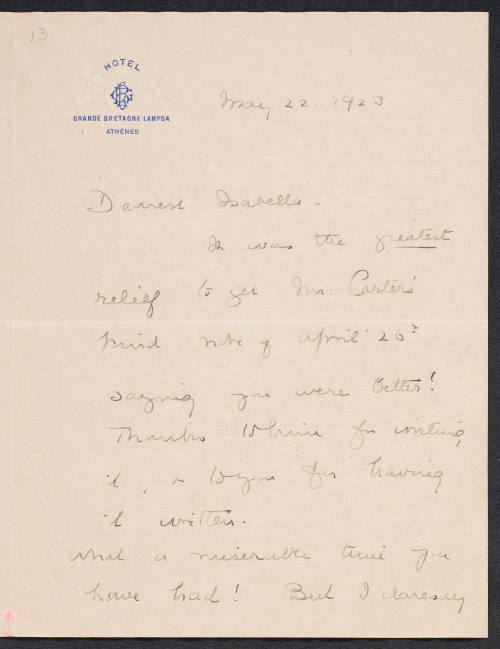 13
HOTEL
GB
GRANDE BRETAGNE-LAMPSA
ATHÈNES
May 22. 1923
Dearest Isabella.
It was the greatest
relief to get Mr. Carter's
kind note of April 26
saying you were better!
Thanks to him for writing
it, & to you for having
it written.
What a miserable time you
have had! But I daresay